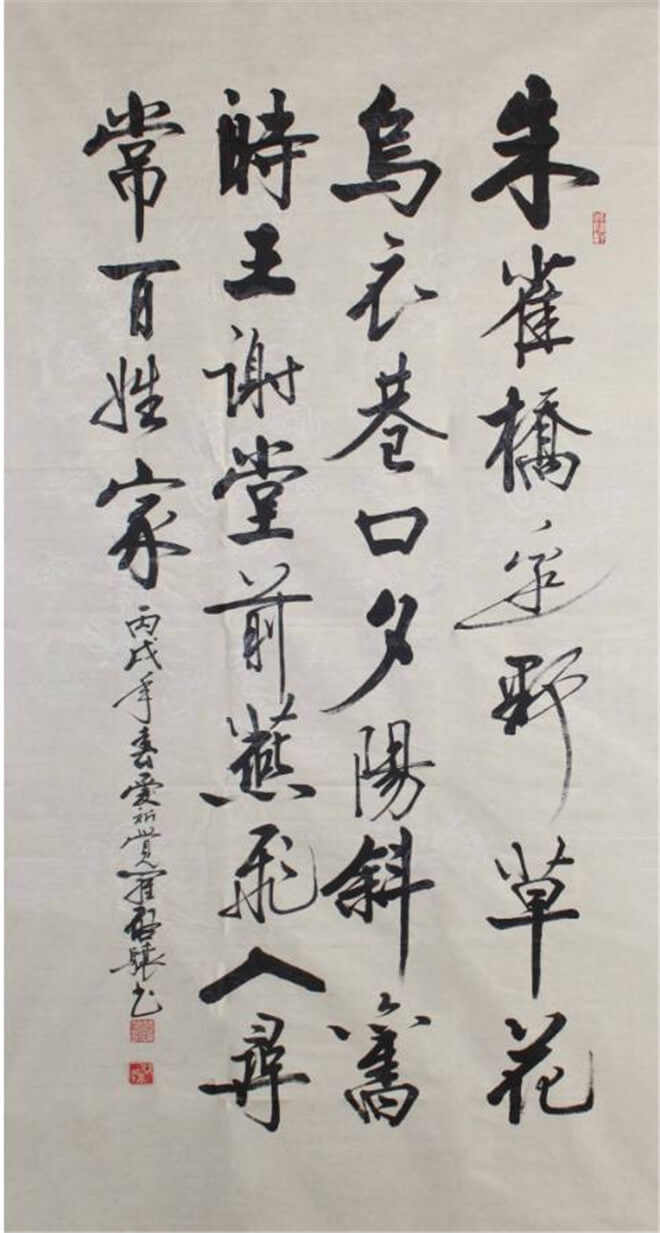 朱雀橋邊野草花
烏衣巷口夕陽斜舊
時王謝堂前燕飛入尋
常百姓家
丙戌年春愛新覺羅啟驤书